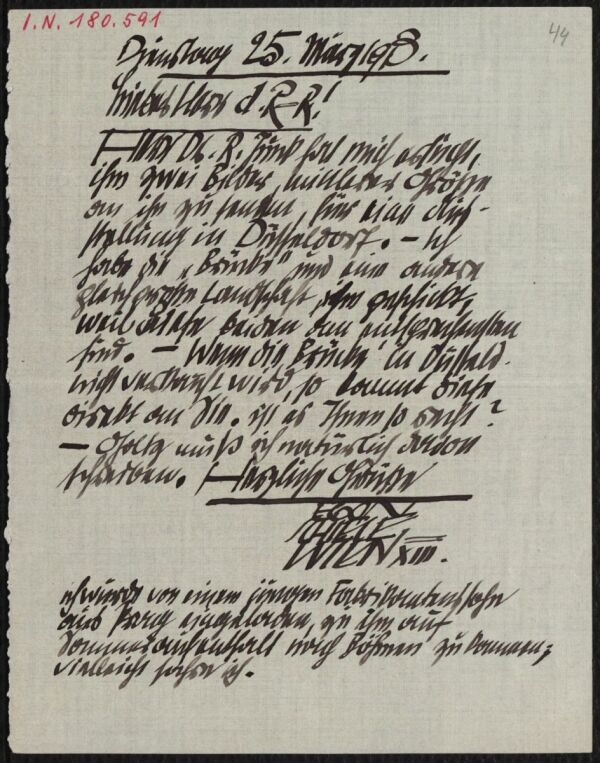 I.N. 180.591
44
Dienstag 25. März 1913.
Lieber Herr d. R-R!
Herr Dr. R. Junk hat mich ersucht,
ihm zwei Bilder mittlerer Größe
an ihn zu senden, für eine Aus-
stellung in Düsseldorf. – Ich
habe die „Brücke" und eine andere
gleichgroße Landschaft, ihm geschickt,
weil diese beiden am entsprechensten
sind. – Wenn die „Brücke" in Düsseld.
nicht verkauft wird, so kommt diese
direkt an Sie. ist es Ihnen so recht?
– Goltz muß ich natürlich davon
schreiben. Herzliche Grüße
EGON
SCHIELE
WIEN XIII.
ich würde von einem jungen Fabrikantensohn
aus Prag eingeladen, zu ihm auf
Sommeraufenthalt nach Böhmen zu kommen;
vielleicht fahre ich.